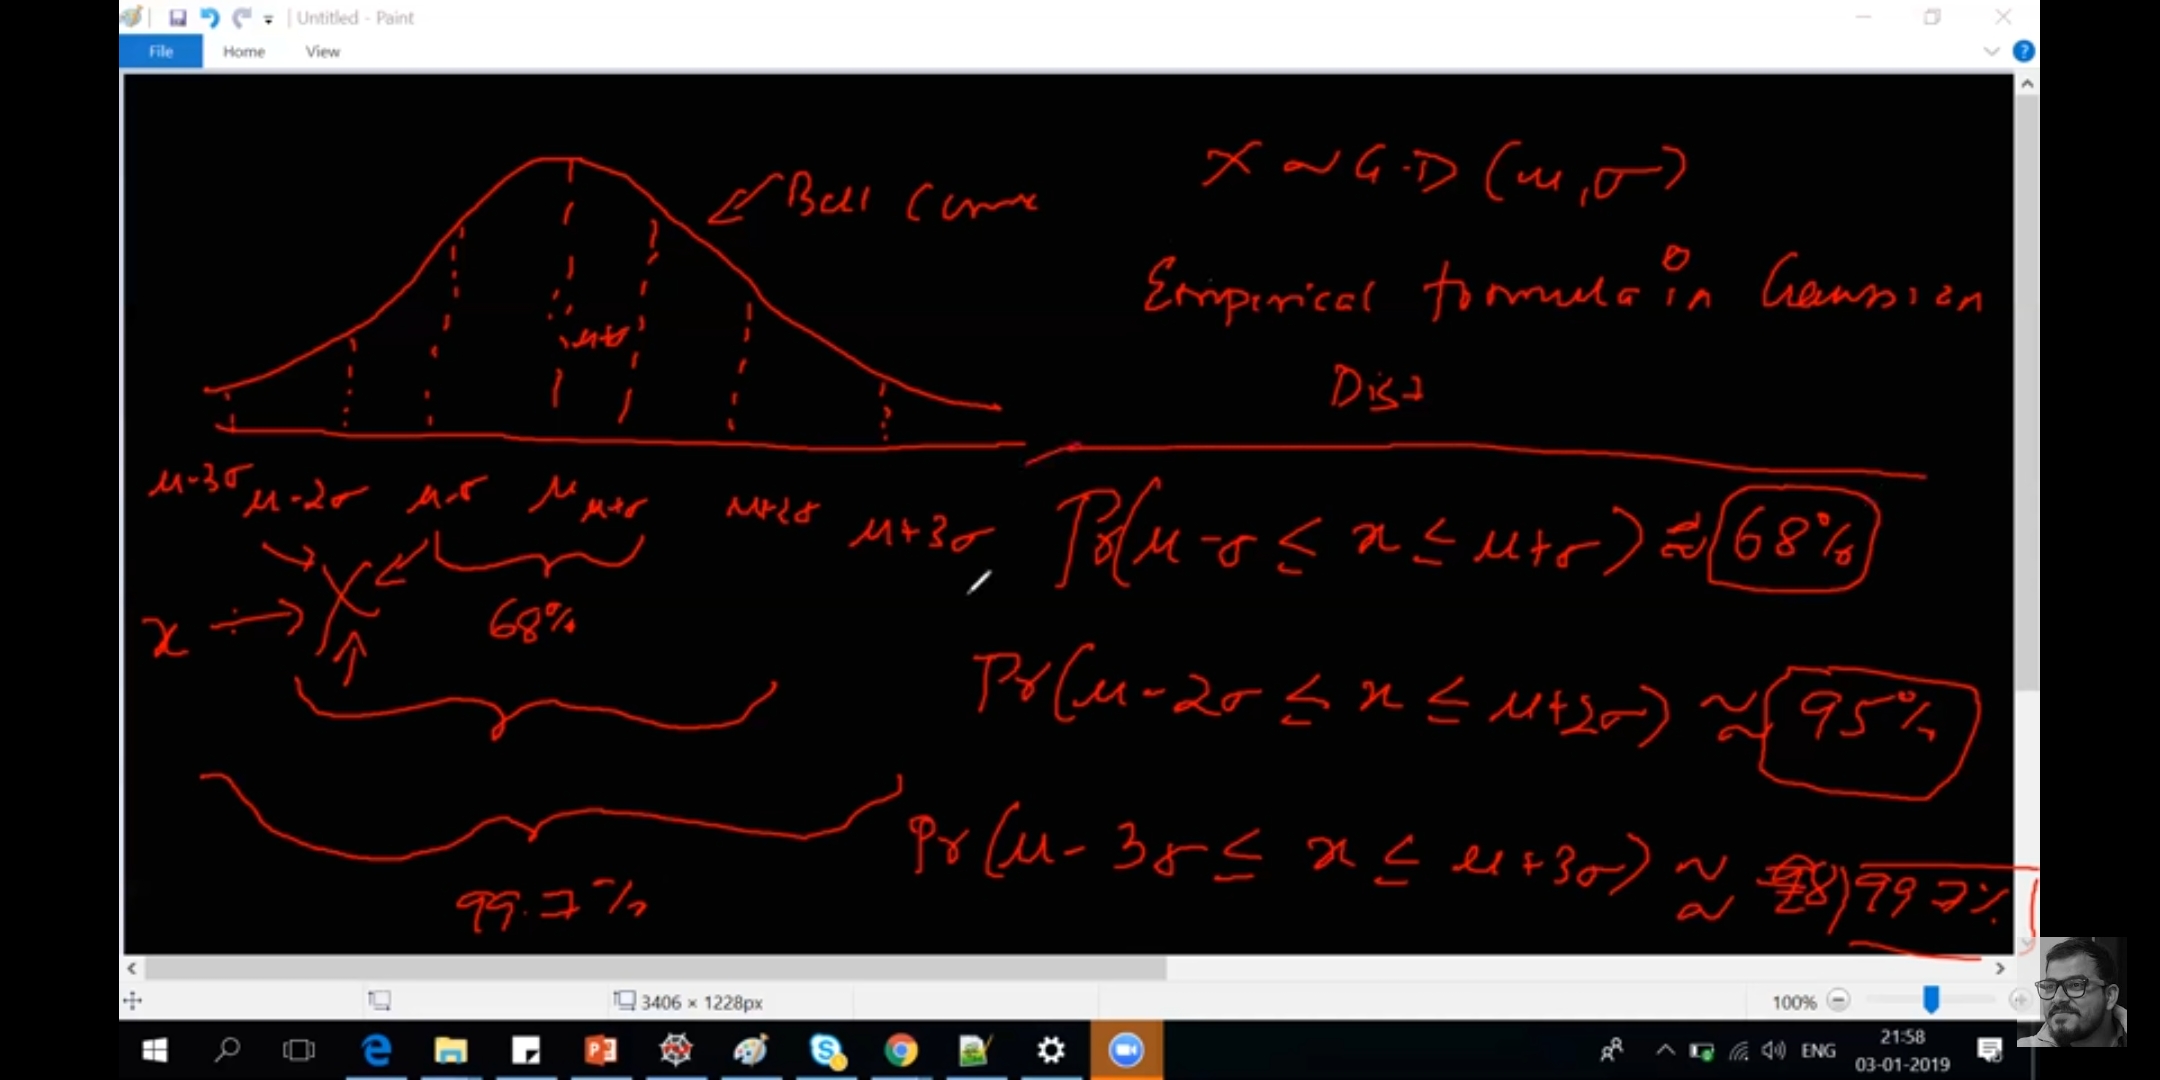 Untitled - Paint
File Home View
Bell Curve
X ~ G.D (μ, σ)
Empirical formula in Gaussian
Dist
μ+σ
μ-3σ μ-2σ μ-σ μ μ+σ μ+2σ μ+3σ
Pr(μ-σ ≤ x ≤ μ+σ) ≈ 68%
x
68%
Pr(μ-2σ ≤ x ≤ μ+2σ) ≈ 95%
Pr(μ-3σ ≤ x ≤ μ+3σ) ≈ 99.7%
99.7%
3406 × 1228px
100%
ENG
21:58
03-01-2019